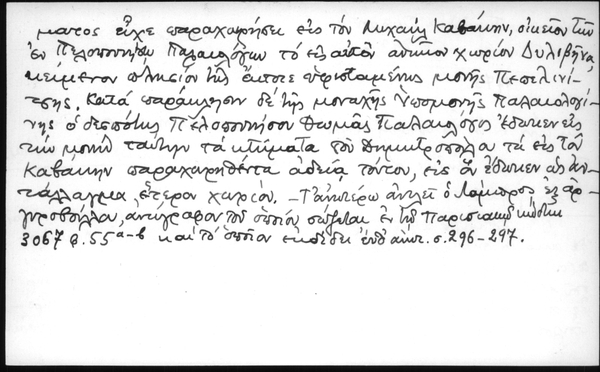 ματος εἶχε παραχωρήσει εἰς τὸν Μιχαὴλ Καβάκην, οἰκεῖον τῶν
ἐν Πελοποννήσῳ Παλαιολόγων τὸ εἰς αὐτὸν ἀνῆκον χωρίον Δυλιβῆνα,
κείμενον πλησίον τῆς ἄλλοτε ὑφισταμένης μονῆς Πεπελινί-
τσης. Κατὰ παράκλησιν δὲ τῆς μοναχῆς Ὑπομονῆς Παλαιολογί-
νης ὁ δεσπότης Πελοποννήσου Θωμᾶς Παλαιολόγος ἔδωκεν εἰς
τὴν μονὴν ταύτην τὰ κτήματα τοῦ Δημητροπούλου τὰ εἰς τὸν
Καβάκην παραχωρηθέντα ἀδείᾳ τούτου, εἰς ὃν ἔδωκεν ὡς ἀν-
τάλλαγμα ἕτερον χωρίον. – Τ' ἀνωτέρω ἀντλεῖ ὁ Λάμπρος ἐξ ἀρ-
γυροβούλλου, ἀντίγραφον τοῦ ὁποίου σῴζεται ἐν τῷ Παρισιακῷ κώδικι
3067 φ. 55α-β καὶ τὸ ὁποῖον ἐκδίδει ἐνθ' ἀνωτ. σ. 296-297.